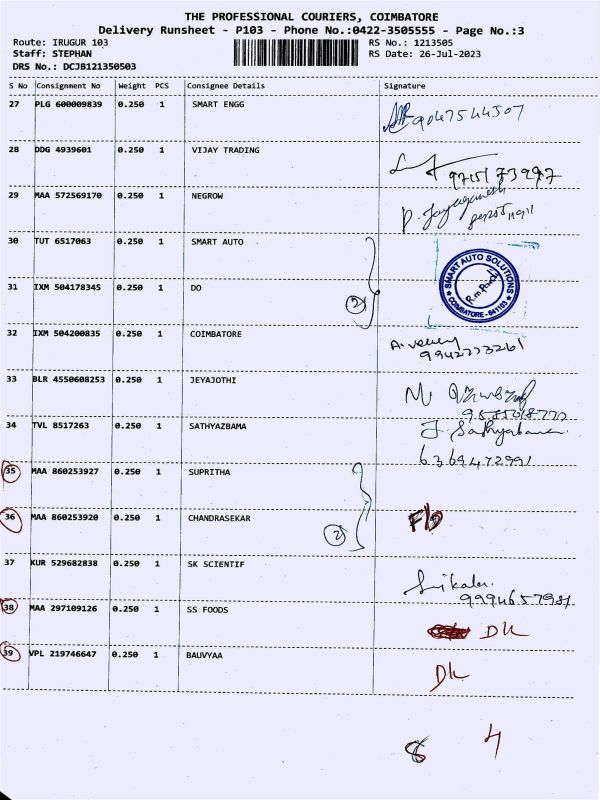 THE PROFESSIONAL COURIERS, COIMBATORE
Delivery Runsheet - P103 - Phone No.:0422-3505555 - Page No.:3
Route: IRUGUR 103 RS No.: 1213505
Staff: STEPHAN RS Date: 26-Jul-2023
DRS No.: DCJB121350503
S No Consignment No Weight PCS Consignee Details Signature
27 PLG 600009839 0.250 1 SMART ENGG 9047544507
28 DDG 4939601 0.250 1 VIJAY TRADING 9715173997
29 MAA 572569170 0.250 1 NEGROW
30 TUT 6517063 0.250 1 SMART AUTO
SMART AUTO SOLUTIONS
COIMBATORE - 641103
31 IXM 504178345 0.250 1 DO
2
32 IXM 504200835 0.250 1 COIMBATORE
9942773261
33 BLR 4550608253 0.250 1 JEYAJOTHI
34 TVL 8517263 0.250 1 SATHYAZBAMA J. Sathyabama
6369472991
35 MAA 860253927 0.250 1 SUPRITHA
36 MAA 860253920 0.250 1 CHANDRASEKAR
2
37 KUR 529682838 0.250 1 SK SCIENTIF Srikala
9994657981
38 MAA 297109126 0.250 1 SS FOODS DK
39 VPL 219746647 0.250 1 BAUVYAA DK
8 4